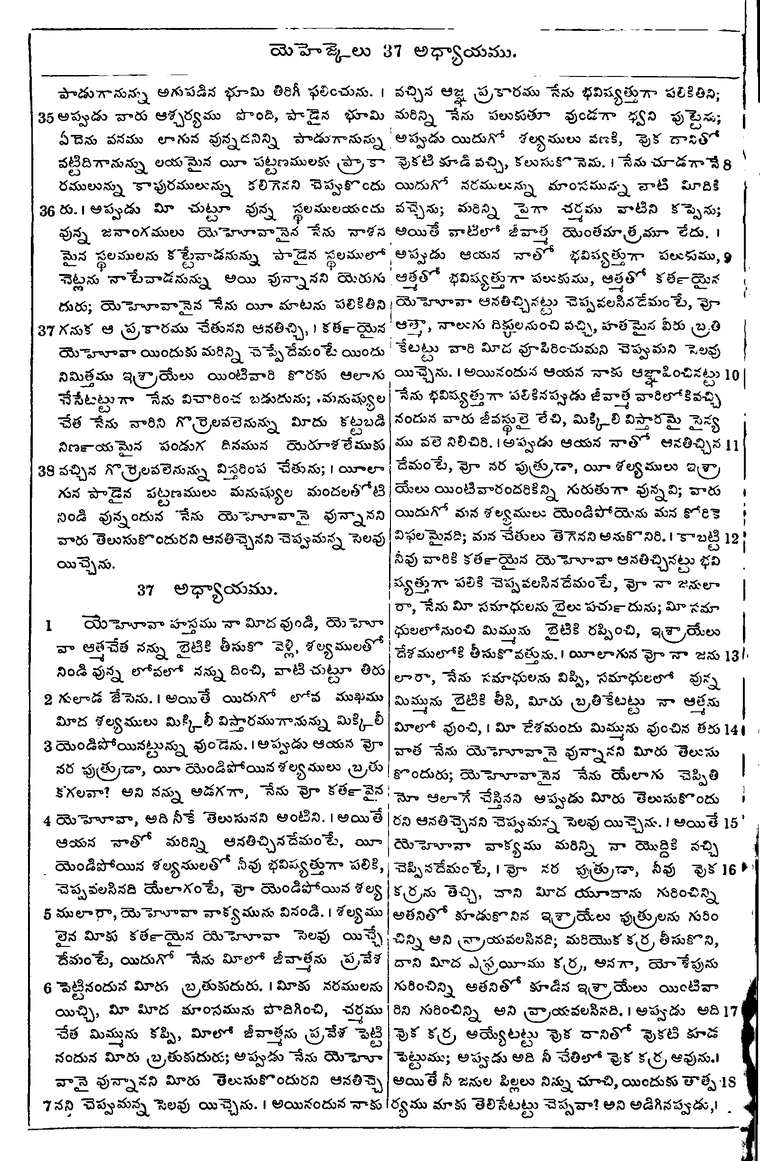 యెహెజ్కేలు 37 అధ్యాయము.
పాడుగానున్ను అగుపడిన భూమి తిరిగీ ఫలించును. ।
35 అప్పుడు వారు ఆశ్చర్యము పొంది, పాడైన భూమి
ఏదెను వనము లాగున వున్నదనిన్ని పాడుగానున్ను
వట్టిదిగానున్ను లయమైన యీ పట్టణములకు ప్రాకా
రములున్ను కాపురములున్ను కలిగెనని చెప్పుకొందు
36 రు. । అప్పుడు మీ చుట్టూ వున్న స్థలములయందు
వున్న జనాంగములు యెహోవానైన నేను నాశన
మైన స్థలములను కట్టేవాడనున్ను పాడైన స్థలములో
చెట్లను నాటేవాడనున్ను అయి వున్నానని యెరుగు
దురు; యెహోవానైన నేను యీ మాటను పలికితిని
37 గనుక ఆ ప్రకారము చేతునని ఆనతిచ్చి, । కర్తయైన
యెహోవా యిందుకు మరిన్ని చెప్పేదేమంటే యిందు
నిమిత్తము ఇశ్రాయేలు యింటివారి కొరకు ఆలాగు
చేసేటట్టుగా నేను విచారించ బడుదును; మనుష్యుల
చేత నేను వారిని గొర్రెలవలెనున్ను మీదు కట్టబడి
నిర్ణయమైన పండుగ దినమున యెరూశలేముకు
38 వచ్చిన గొర్రెలవలెనున్ను విస్తరింప చేతును; । యీలా
గున పాడైన పట్టణములు మనుష్యుల మందలతోటి
నిండి వున్నందున నేను యెహోవానై వున్నానని
వారు తెలుసుకొందురని ఆనతిచ్చెనని చెప్పుమన్న సెలవు
యిచ్చెను.
37 అధ్యాయము.
1 యెహోవా హస్తము నా మీద వుండి, యెహో
వా ఆత్మచేత నన్ను బైటికి తీసుకొ వెళ్లి, శల్యములతో
నిండి వున్న లోవలో నన్ను దించి, వాటి చుట్టూ తిరు
2 గులాడ జేసెను. । అయితే యిదుగో లోవ ముఖము
మీద శల్యములు మిక్కిలీ విస్తారముగానున్ను మిక్కిలీ
3 యెండిపోయినట్టున్ను వుండెను. । అప్పుడు ఆయన వోా
నర పుత్రుడా, యీ యెండిపోయిన శల్యములు బ్రతు
కగలవా? అని నన్ను అడగగా, నేను వోా కర్తవైన
4 యెహోవా, అది నీకే తెలుసునని అంటిని. । అయితే
ఆయన నాతో మరిన్ని ఆనతిచ్చినదేమంటే, యీ
యెండిపోయిన శల్యములతో నీవు భవిష్యత్తుగా పలికి,
చెప్పవలసినది యేలాగంటే, వోా యెండిపోయిన శల్య
5 ములారా, యెహోవా వాక్యమును వినండి. । శల్యము
లైన మీకు కర్తయైన యెహోవా సెలవు యిచ్చే
దేమంటే, యిదుగో నేను మీలో జీవాత్మను ప్రవేశ
6 పెట్టినందున మీరు బ్రతుకుదురు. । మీకు నరములను
యిచ్చి, మీ మీద మాంసమును పొదిగించి, చర్మము
చేత మిమ్మును కప్పి, మీలో జీవాత్మను ప్రవేశ పెట్టి
నందున మీరు బ్రతుకుదురు; అప్పుడు నేను యెహో
వానై వున్నానని మీరు తెలుసుకొందురని ఆనతిచ్చె
7 నని చెప్పుమన్న సెలవు యిచ్చెను. । అయినందున నాకు
వచ్చిన ఆజ్ఞ ప్రకారము నేను భవిష్యత్తుగా పలికితిని;
మరిన్ని నేను పలుకుతూ వుండగా ధ్వని పుట్టెను;
అప్పుడు యిదుగో శల్యములు వణకి, వుక దానితో
వుకటి కూడి వచ్చి, కలుసుకొనెను. । నేను చూడగానే 8
యిదుగో నరములున్ను మాంసమున్ను వాటి మీదికి
వచ్చెను; మరిన్ని పైగా చర్మము వాటిని కప్పెను;
అయితే వాటిలో జీవాత్మ యెంతమాత్రమూ లేదు. ।
అప్పుడు ఆయన నాతో భవిష్యత్తుగా పలుకుము, 9
ఆత్మతో భవిష్యత్తుగా పలుకుము, ఆత్మతో కర్తయైన
యెహోవా ఆనతిచ్చినట్టు చెప్పవలసినదేమంటే, వోా
ఆత్మా, నాలుగు దిక్కులనుంచి వచ్చి, హతమైన వీరు బ్రతి
కేటట్టు వారి మీద వూపిరించుమని చెప్పుమని సెలవు
యిచ్చెను. । అయినందున ఆయన నాకు ఆజ్ఞాపించినట్టు 10
నేను భవిష్యత్తుగా పలికినప్పుడు జీవాత్మ వారిలోకి వచ్చి
నందున వారు జీవస్థులై లేచి, మిక్కిలి విస్తారమై సైన్య
ము వలె నిలిచిరి. । అప్పుడు ఆయన నాతో ఆనతిచ్చిన 11
దేమంటే, వోా నర పుత్రుడా, యీ శల్యములు ఇశ్రా
యేలు యింటివారందరికిన్ని గురుతుగా వున్నవి; వారు
యిదుగో మన శల్యములు యెండిపోయెను మన కోరికె
విఫలమైనది; మన చేతులు తెగెనని అనుకొనిరి. । కాబట్టి 12
నీవు వారికి కర్తయైన యెహోవా ఆనతిచ్చినట్టు భవి
ష్యత్తుగా పలికి చెప్పవలసినదేమంటే, వోా నా జనులా
రా, నేను మీ సమాధులను బైలు పరుచుదును; మీ సమా
ధులలోనుంచి మిమ్మును బైటికి రప్పించి, ఇశ్రాయేలు
దేశములోకి తీసుకొవత్తును. । యీలాగున వోా నా జను 13
లారా, నేను సమాధులను విప్పి, సమాధులలో వున్న
మిమ్మును బైటికి తీసి, మీరు బ్రతికేటట్టు నా ఆత్మను
మీలో వుంచి, । మీ దేశమందు మిమ్మును వుంచిన తరు 14
వాత నేను యెహోవానై వున్నానని మీరు తెలుసు
కొందురు; యెహోవానైన నేను యేలాగు చెప్పితి
నో ఆలాగే చేస్తినని అప్పుడు మీరు తెలుసుకొందు
రని ఆనతిచ్చెనని చెప్పుమన్న సెలవు యిచ్చెను. । అయితే 15
యెహోవా వాక్యము మరిన్ని నా యొద్దికి వచ్చి
చెప్పినదేమంటే, । వోా నర పుత్రుడా, నీవు వుక 16
కర్రను తెచ్చి, దాని మీద యూదాను గురించిన్ని
అతనితో కూడుకొనిన ఇశ్రాయేలు పుత్రులను గురిం
చిన్ని అని వ్రాయవలసినది; మరియొక కర్ర తీసుకొని,
దాని మీద ఎఫ్రయిము కర్ర, అనగా, యోశేపును
గురించిన్ని అతనితో కూడిన ఇశ్రాయేలు యింటివా
రిని గురించిన్ని అని వ్రాయవలసినది. । అప్పుడు అది 17
వుక కర్ర అయ్యేటట్టు వుక దానితో వుకటి కూడ
పెట్టుము; అప్పుడు అది నీ చేతిలో వుక కర్ర అవును. ।
అయితే నీ జనుల పిల్లలు నిన్ను చూచి, యిందుకు తాత్ప 18
ర్యము మాకు తెలిసేటట్టు చెప్పవా? అని అడిగినప్పుడు, ।